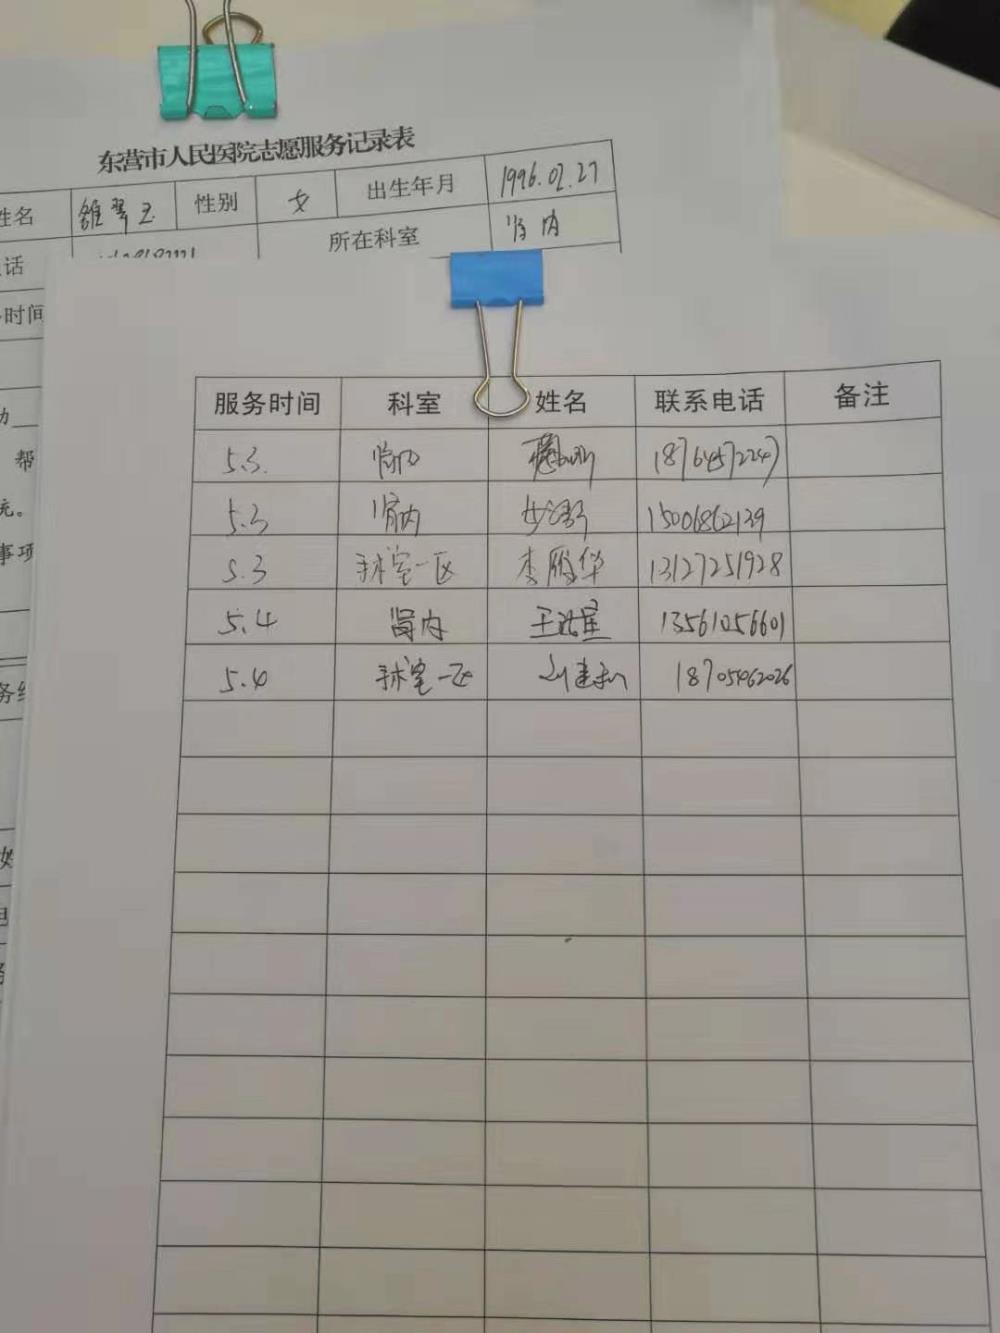 东营市人民医院志愿服务记录表
姓名 性别 女 出生年月 1996.02.27
话 所在科室 肾内
时间
帮
事项
服务时间 科室 姓名 联系电话 备注
5.3. 肾内 18764572247
5.3 肾内 15006862139
5.3 手术室一区 李鹏华 13127251928
5.4 肾内 13561056601
5.4 手术室一区 刘建 18705462026